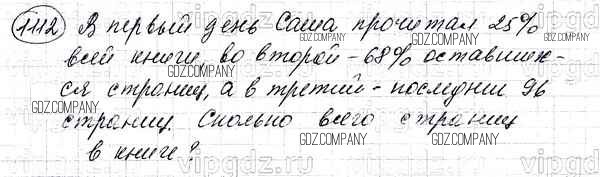 1112 В первый день Саша прочитал 25%
всей книги, во второй - 68% оставших-
ся страниц, а в третий - последнии 96
страниц. Сколько всего страниц
в книге?
GDZ.COMPANY GDZ.COMPANY GDZ.COMPANY
GDZ.COMPANY GDZ.COMPANY GDZ.COMPANY
GDZ.COMPANY GDZ.COMPANY
vipgdz.ru